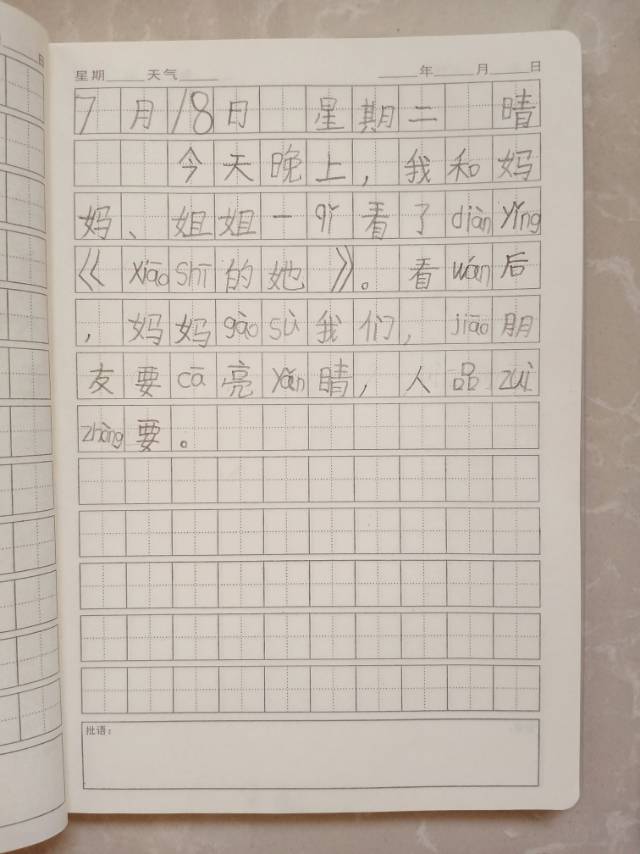 日
星期 天气 年 月 日
7月18日 星期二 晴
今天晚上，我和妈
妈、姐姐一qǐ看了diànyǐng
《xiāoshī的她》。看wán后
，妈妈gàosù我们，jiāo朋
友要cā亮yǎn睛，人品zuì
zhòng要。
批语：